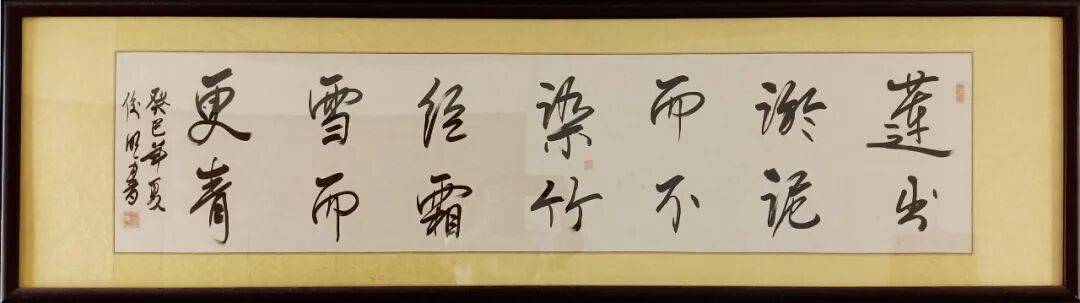 莲出
淤泥
而不
染竹
经霜
雪而
更青
癸巳年夏
俊明書